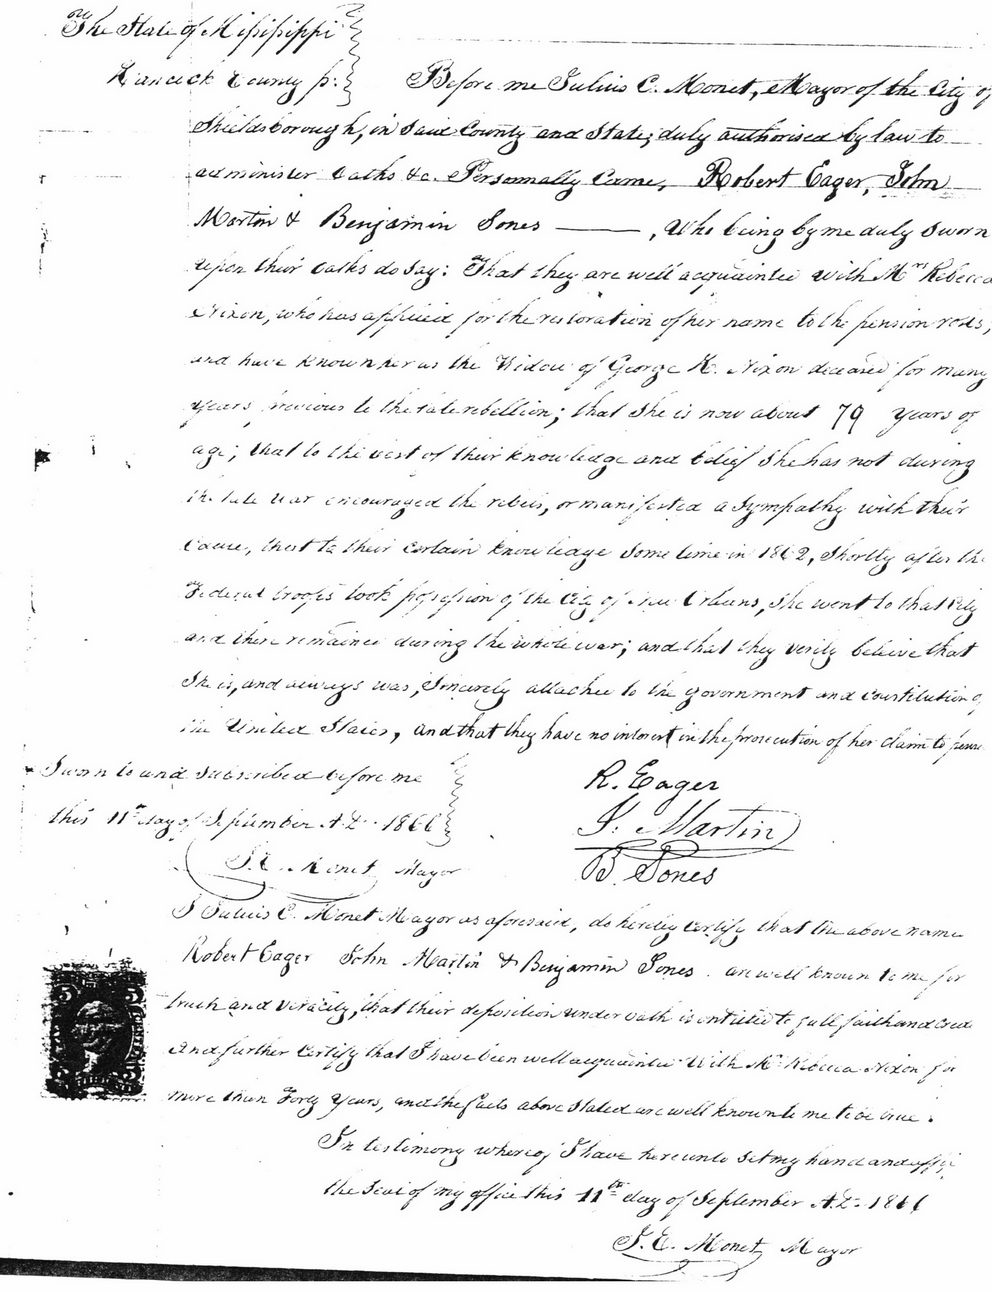 The State of Mississippi
Hancock County ss.
Before me Julius C. Monet, Mayor of the City of
Shieldsborough, in Said County and State; duly authorised by law to
administer Oaths &c. Personnally Came, Robert Eager, John
Martin & Benjamin Sones ——— , Who being by me duly Sworn
upon their oaths do say: That they are well acquainted with Mrs Rebecca
Nixon, who has applied for the restoration of her name to the pension rolls,
and have known her as the Widow of George H. Nixon deceased for many
years previous to the late rebellion; that She is now about 79 years of
age; that to the best of their knowledge and belief She has not during
the late war encouraged the rebels, or manifested a Sympathy with their
Cause, that to their certain knowledge Some time in 1862, Shortly after the
Federal troops took possession of the City of New Orleans, She went to that City
and there remained during the whole war; and that they verily believe that
She is, and always was, Sincerely attached to the government and constitution of
the United States, and that they have no interest in the prosecution of her claim to
Sworn to and Subscribed before me
this 11th day of September A.D. 1866
J.E. Monet Mayor
R. Eager
J. Martin
B. Sones
I Julius E. Monet Mayor as aforesaid, do hereby certify that the above name
Robert Eager John Martin & Benjamin Sones are well known to me for
truth and veracity, that their deposition under oath is entitled to full faith and cred
And further certify that I have been well acquainted With Mrs Rebecca Nixon for
more than Forty years, and the facts above Stated are well known to me to be true.
In testimony whereof I have hereunto Set my hand and
the Seal of my office this 11th day of September A.D. 1866
J. E. Monet Mayor